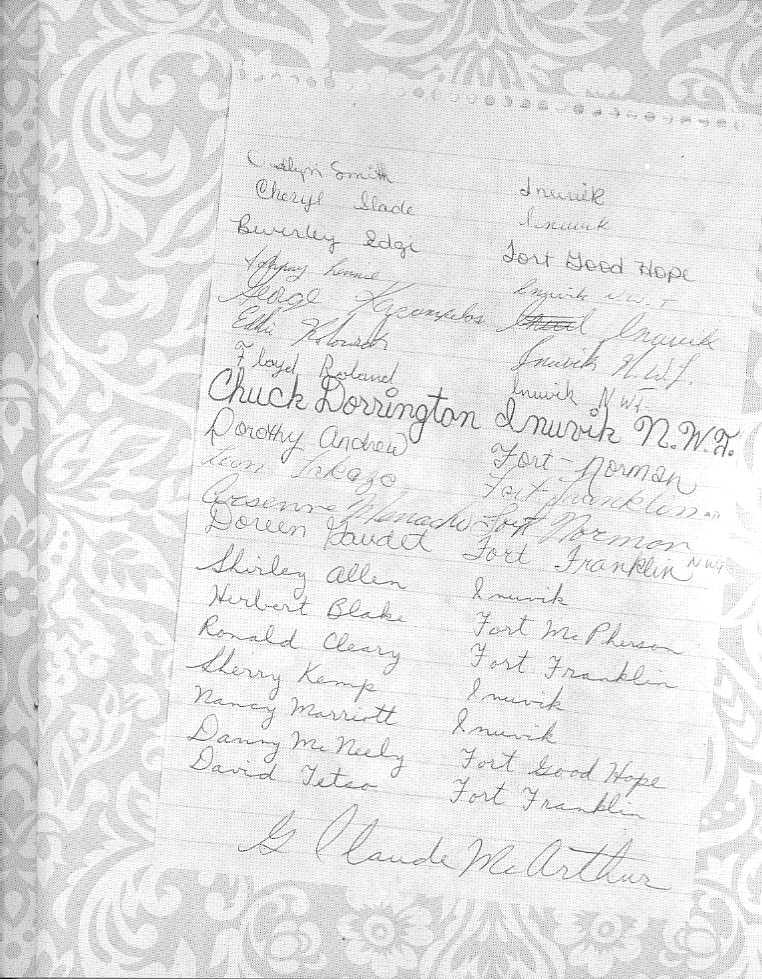 Smith Inuvik
Cheryl Slade Inuvik
Beverley Edgi Fort Good Hope
Inuvik N.W.T
George Inuvik
Eddie Inuvik N.W.T.
Floyd Roland Inuvik NWT
Chuck Dorrington Inuvik N.W.T.
Dorothy Andrew Fort-Norman
Leon Takazo Fort-Franklin
Arsenne Menacho Fort Norman
Doreen Gaudet Fort Franklin NWT
Shirley Allen Inuvik
Herbert Blake Fort McPherson
Ronald Cleary Fort Franklin
Sherry Kemp Inuvik
Nancy Marriott Inuvik
Danny McNeely Fort Good Hope
David Tetso Fort Franklin
G Claude McArthur